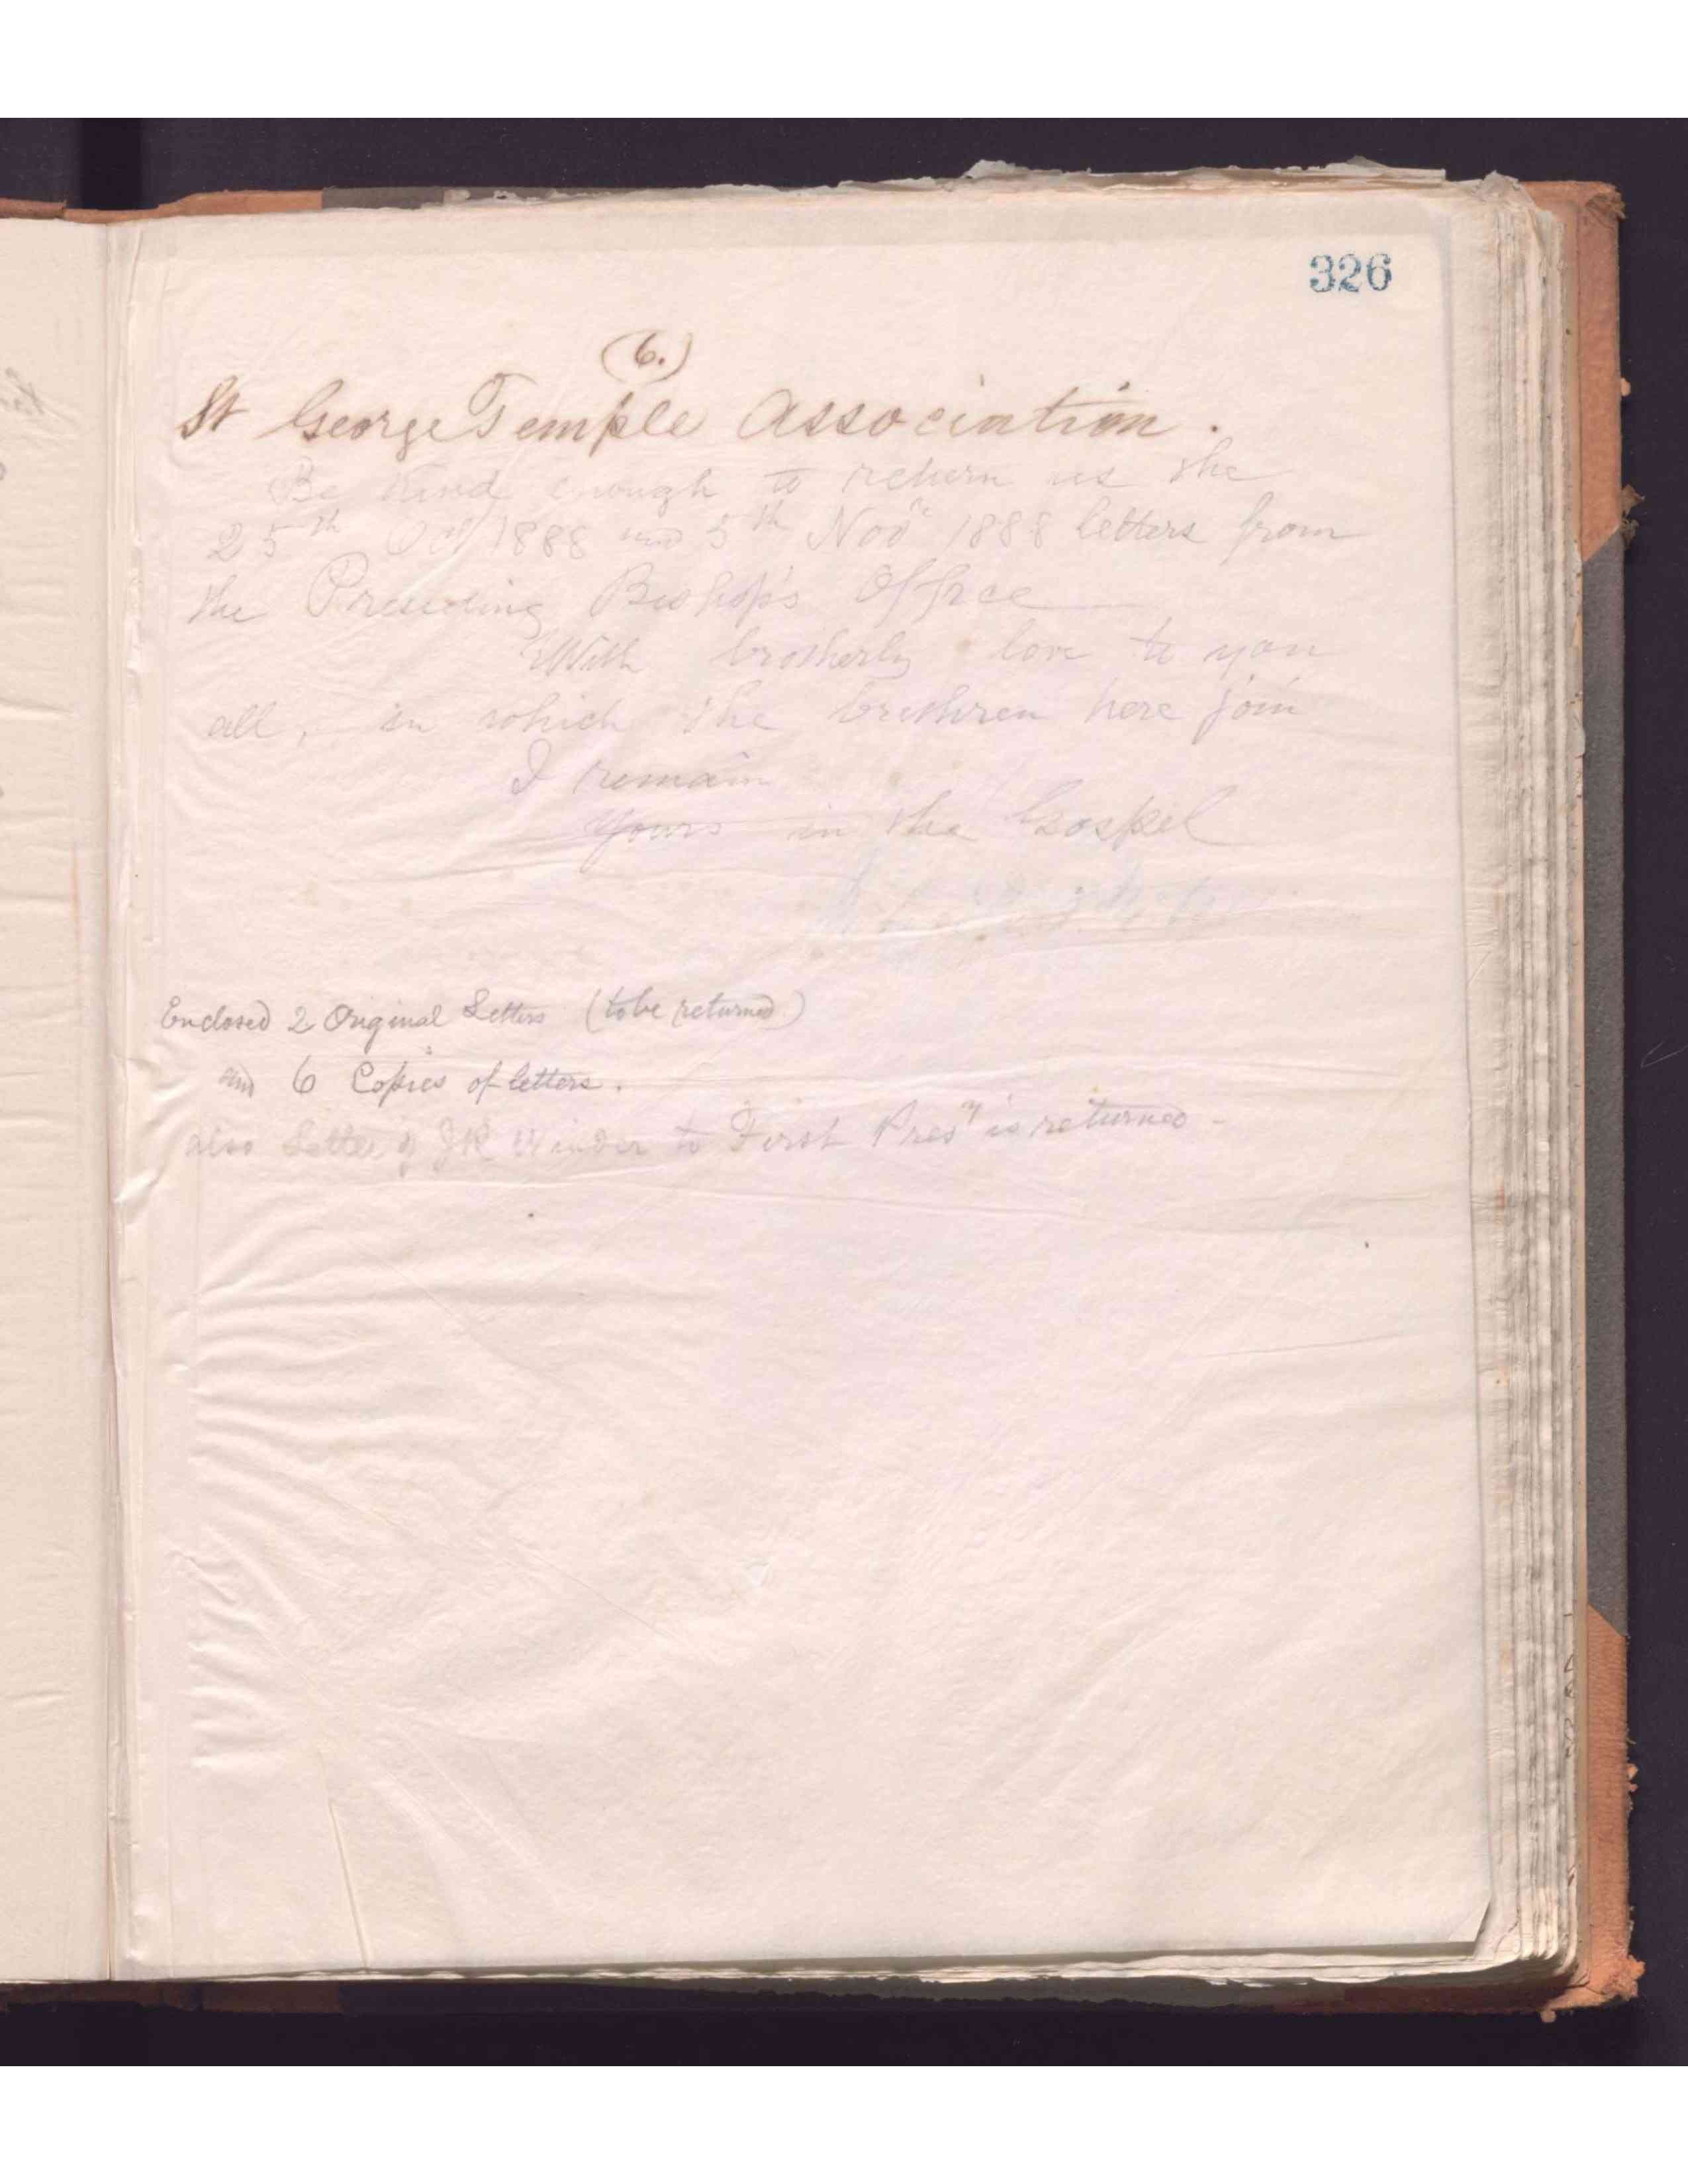 326
(6.)
St George Temple Association.
Be kind enough to return us the
25th Oct 1888 and 5th Novr 1888 letters from
the Presiding Bishop's Office
With brotherly love to you
all, in which the brethren here join
I remain
Yours in the Gospel
Enclosed 2 Original Letters (to be returned)
and 6 Copies of letters.
also Letter of JR Winder to First Presy is returned -